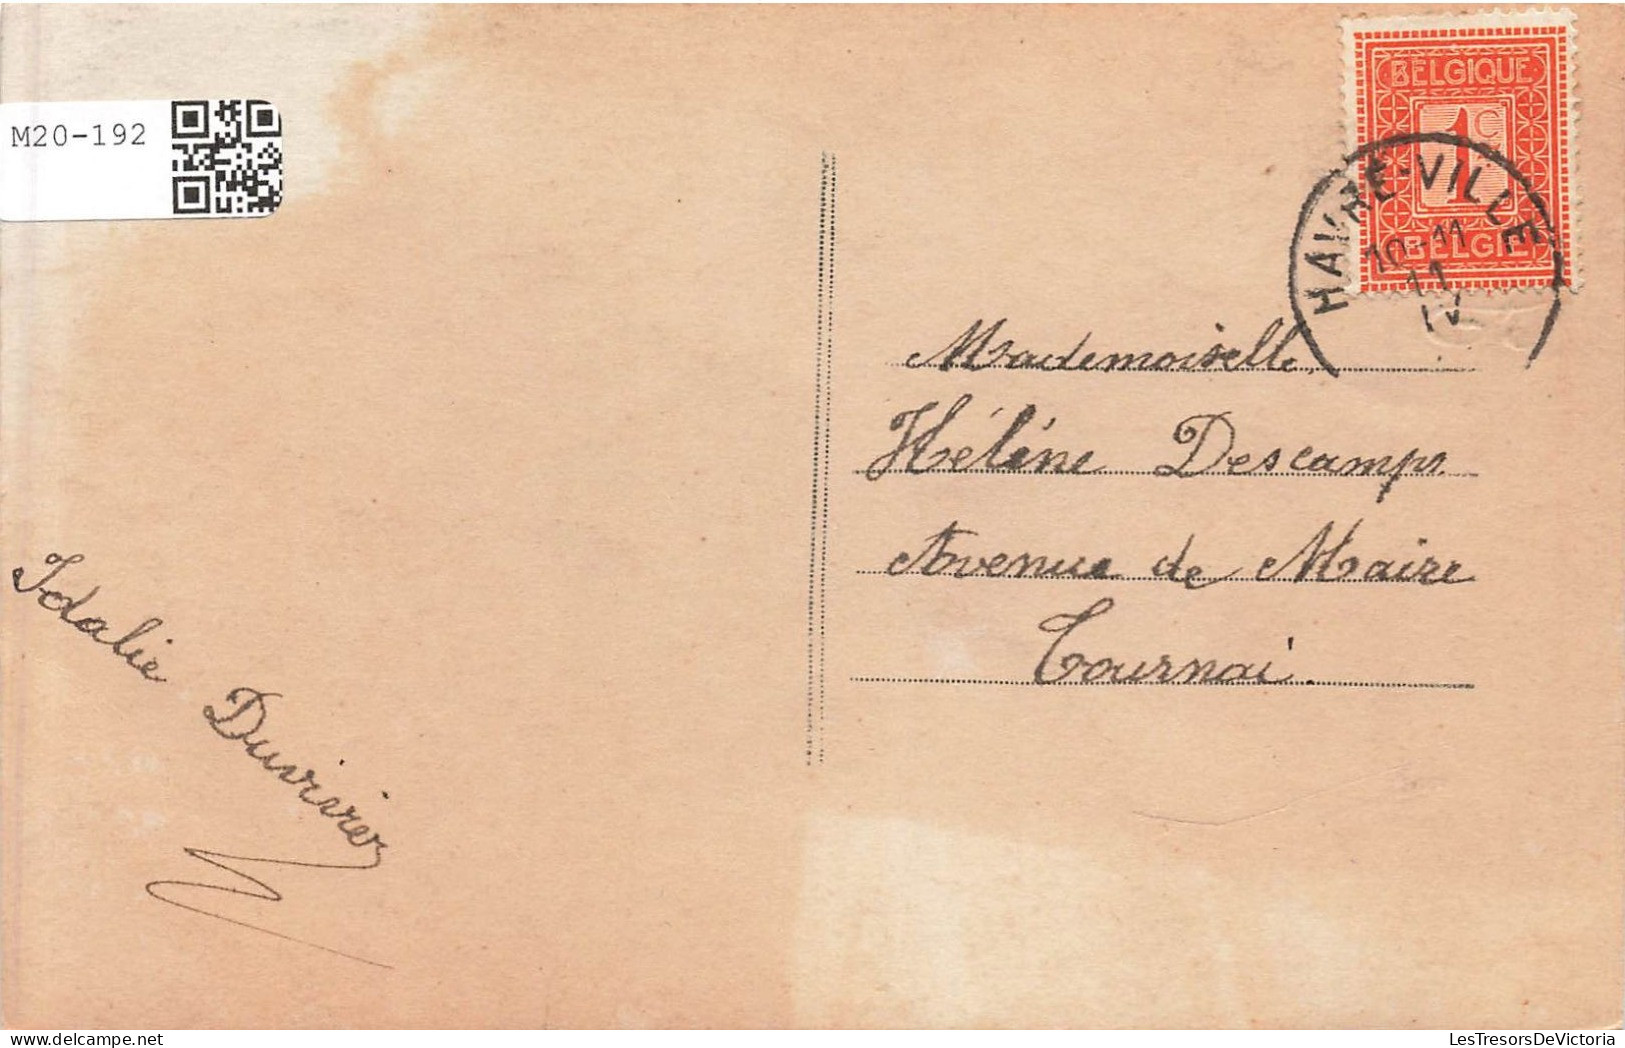 M20-192
BELGIQUE
1C
BELGIË
HAVRÉ-VILLE
10-11
11
IV
Mademoiselle
Hélène Descamps
Avenue de Maire
Tournai.
Idalie
Duvivier
LesTresorsDeVictoria